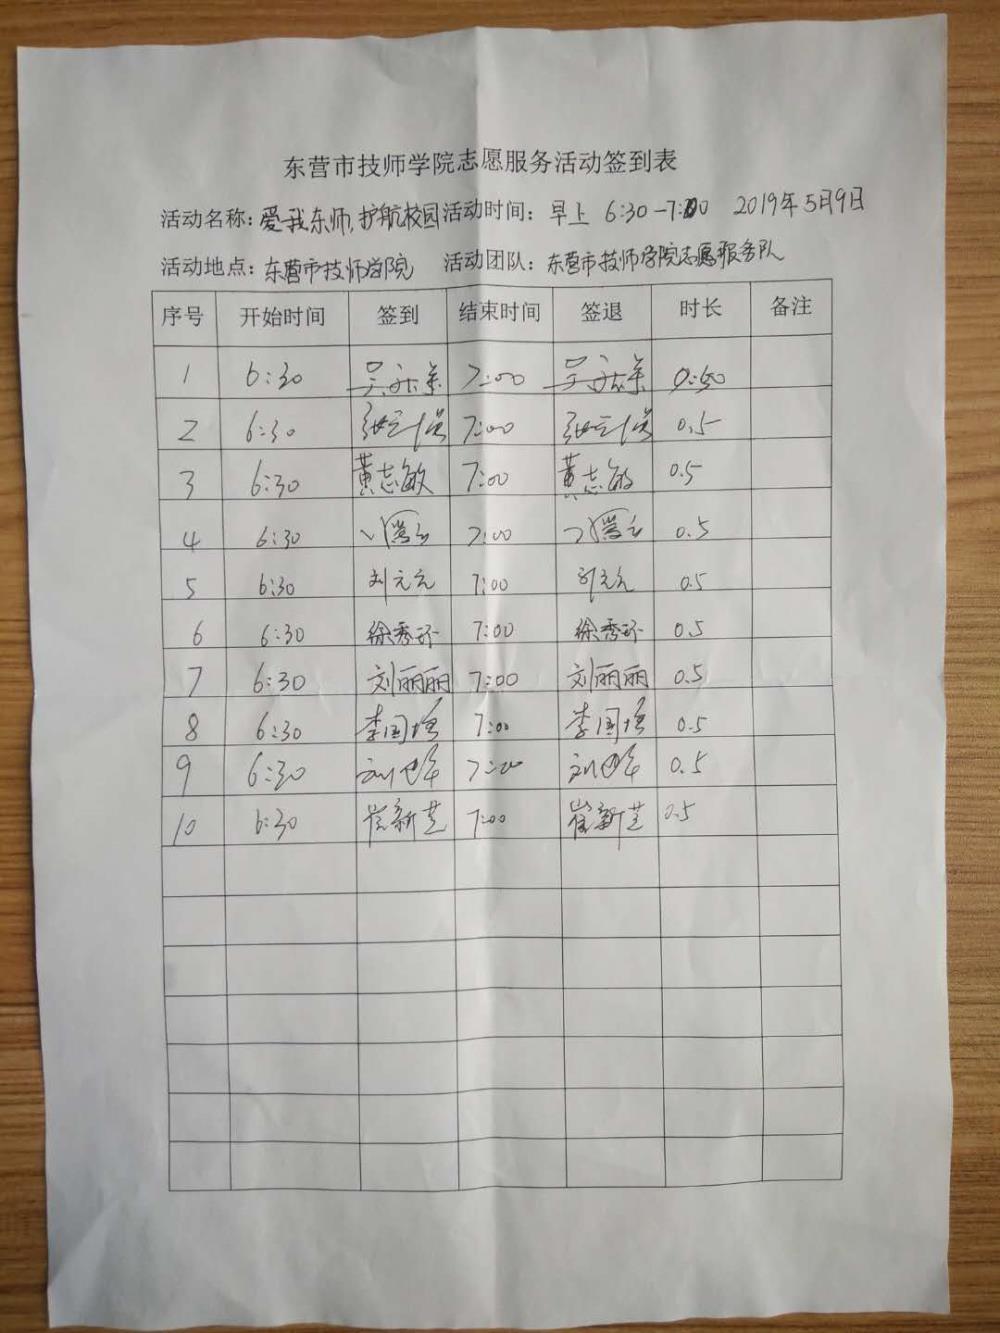 东营市技师学院志愿服务活动签到表
活动名称：爱我东师，护航校园 活动时间：早上 6:30-7:00 2019年5月9日
活动地点：东营市技师学院 活动团队：东营市技师学院志愿服务队
序号 开始时间 签到 结束时间 签退 时长 备注
1 6:30 7:00
2 6:30 7:00 0.5
3 6:30 黄志敏 7:00 黄志敏 0.5
4 6:30 7:00 0.5
5 6:30 刘元元 7:00 刘元元 0.5
6 6:30 徐秀环 7:00 徐秀环 0.5
7 6:30 刘丽丽 7:00 刘丽丽 0.5
8 6:30 李国增 7:00 李国增 0.5
9 6:30 7:00 0.5
10 6:30 崔新芝 7:00 崔新芝 0.5